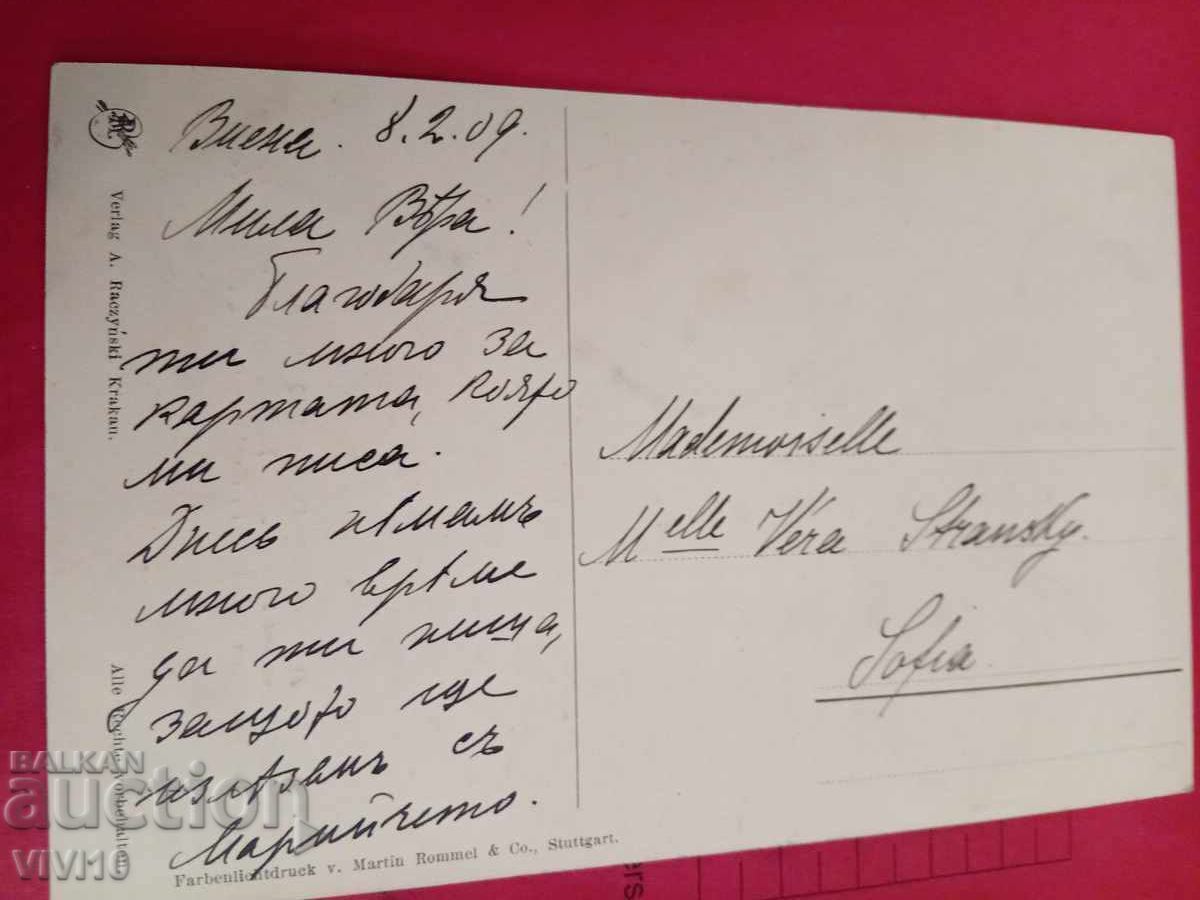 Виена. 8.2.09.
Мила Вѣра!
Благодаря
ти много за
картата, която
ми писа.
Днесь нѣмамъ
много врѣме
да ти пиша,
защото ще
излѣзанъ съ
Марийчето.
Mademoiselle
Melle Véra Stransky.
Sofia
Verlag A. Raczyński Krakau.
Alle Rechte vorbehalten
Farbenlichtdruck v. Martin Rommel & Co., Stuttgart.
BALKAN
auction
VIVI10
ers